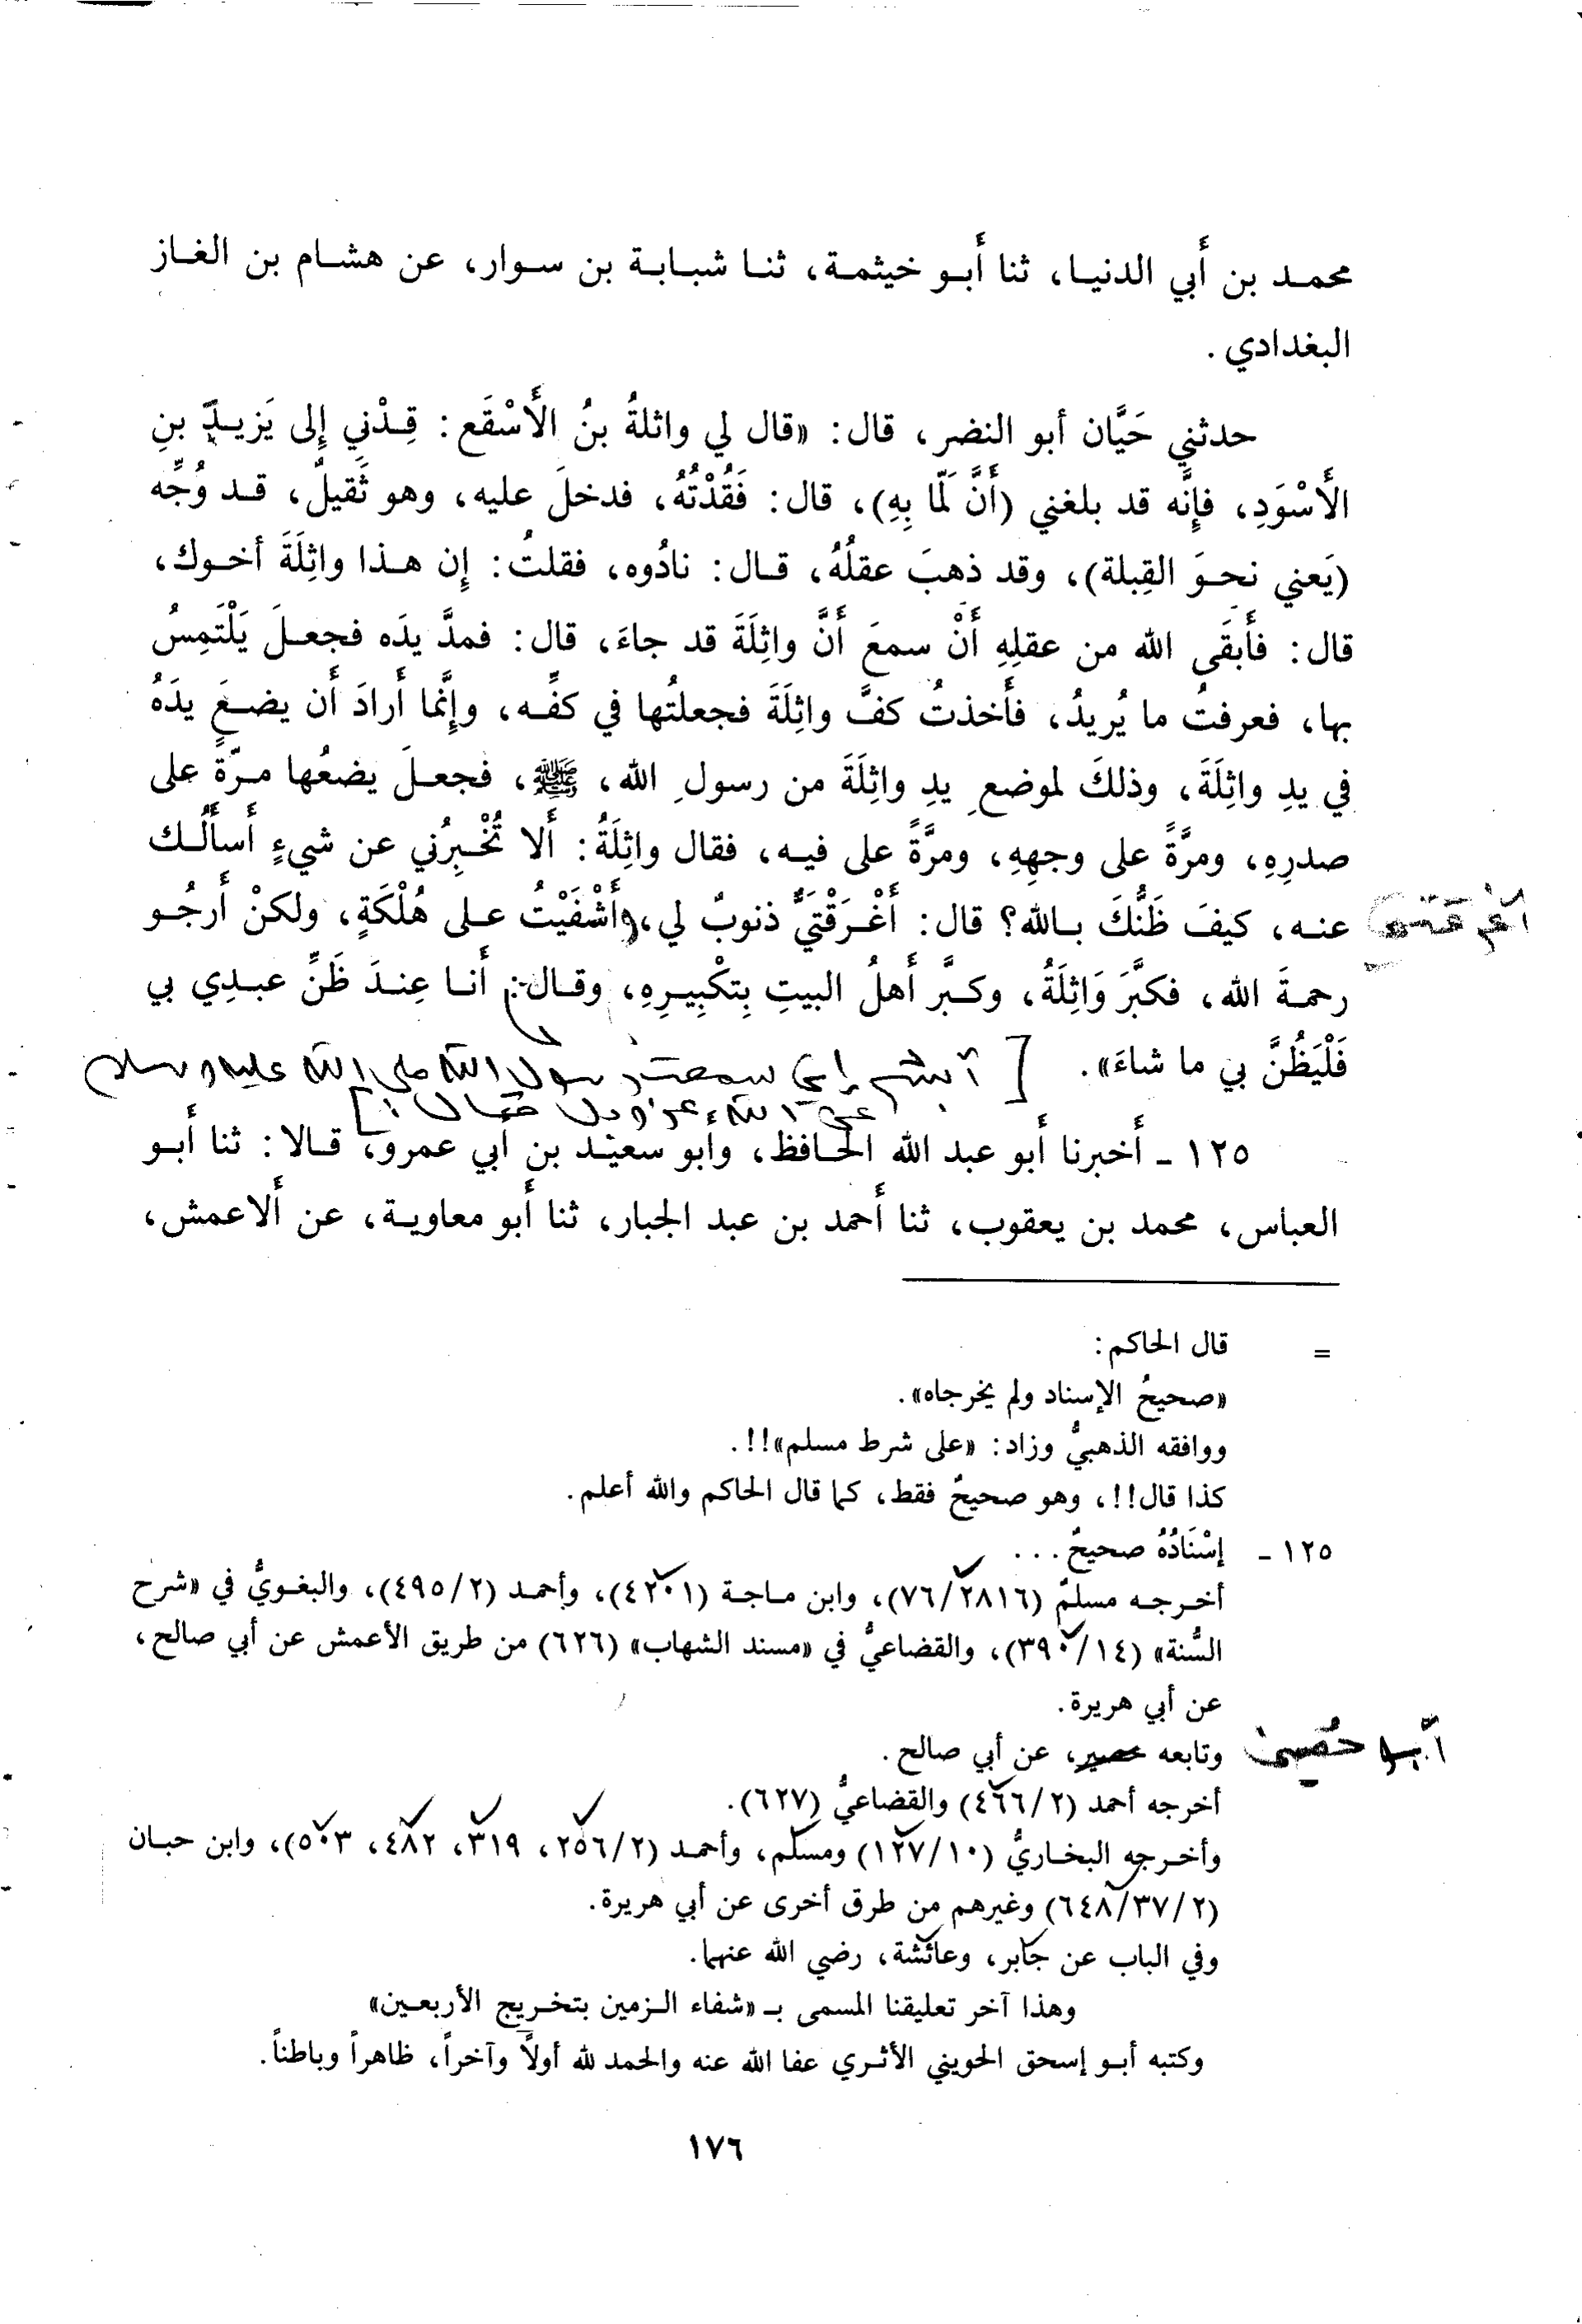 محمـد بن أَبي الدنيـا، ثنا أَبـو خيثمـة، ثنـا شبـابـة بن سـوار، عن هشـام بن الغـاز
البغدادي.
حدثني حَيَّان أبو النضر، قال: «قال لي واثلةُ بنُ الأَسْقَع: قِـذْنِي إِلى يَزيـدِّ بنِ
الأَسْوَدِ، فإِنَّه قد بلغني (أَنَّ لَمَّا بِهِ)، قال: فَقُدْتُهُ، فدخلَ عليه، وهو ثَقيلٌ، قـد وُجِّه
(يَعني نحـوَ القِبلة)، وقد ذهبَ عقلُهُ، قـال: نادُوه، فقلتُ: إِن هـذا واثِلَةَ أخـوك،
قال: فأَبقَى الله من عقلِهِ أَنْ سمعَ أَنَّ واثِلَةَ قد جاءَ، قال: فمدَّ يدَه فجعـلَ يَلْتَمِسُ
بها، فعرفتُ ما يُريدُ، فأَخذتُ كفَّ واثِلَةَ فجعلتُها في كفِّـه، وإِنَّما أَرادَ أَن يضـعَ يدَهُ
في يدِ واثِلَةَ، وذلكَ لموضع يدِ واثِلَةَ من رسول الله، ﷺ، فجعـلَ يضعُها مـرّةً على
صدرِهِ، ومرَّةً على وجهِهِ، ومرَّةً على فيـه، فقال واثِلَةُ: أَلا تُخْـبِرُني عن شيءٍ أَسأَلُـك
عنـه، كيفَ ظَنُّكَ بـالله؟ قال: أَغْـرَقْتَيَّ ذنوبٌ لي، وأَشْفَيْتُ عـلى هُلْكَةٍ، ولكنْ أَرجُـو
اغرقتني
رحمـةَ الله، فكبَّرَ وَاثِلَةُ، وكـبَّر أَهلُ البيتِ بِتكْبِيـرِهِ، وقـال: أَنـا عِنـدَ ظَنِّ عبـدِي بي
فَلْيَظُنَّ بي ما شاءَ».
[أبشر إني سمعت رسول الله صلى الله عليه وسلم
عن الله عز وجل فقال:]
١٢٥ ـ أَخبرنا أَبو عبد الله الحـافظ، وأبو سعيـد بن أَبي عمرو، قـالا: ثنا أَبـو
العباس، محمد بن يعقوب، ثنا أَحمد بن عبد الجبار، ثنا أَبو معاويـة، عن أَلاعمش،
= قال الحاكم:
«صحيحُ الإسناد ولم يخرجاه».
ووافقه الذهبيُّ وزاد: «على شرط مسلم»!!.
كذا قال!!، وهو صحيحٌ فقط، كما قال الحاكم والله أعلم.
١٢٥ ـ إسْنَادُهُ صحيحٌ...
أخـرجـه مسلمٌ (٧٦/٢٨١٦)، وابن مـاجـة (٤٢٠١)، وأحمـد (٤٩٥/٢)، والبغـويُّ في «شرح
السُّنة» (٣٩٠/١٤)، والقضاعيُّ في «مسند الشهاب» (٦٢٦) من طريق الأعمش عن أبي صالح،
عن أبي هريرة.
وتابعه حصين، عن أبي صالح.
أبو حُصين
أخرجه أحمد (٤٦٦/٢) والقضاعيُّ (٦٢٧).
وأخـرجه البخـاريُّ (١٢٧/١٠) ومسلم، وأحمـد (٢٥٦/٢، ٣١٩، ٤٨٢، ٥٠٣)، وابن حبـان
(٦٤٨/٣٧/٢) وغيرهم من طرق أخرى عن أبي هريرة.
وفي الباب عن جابر، وعائشة، رضي الله عنهما.
وهذا آخر تعليقنا المسمى بـ «شفاء الـزمين بتخـريج الأربعـين»
وكتبه أبـو إسحق الحويني الأثـري عفا الله عنه والحمد لله أولاً وآخراً، ظاهراً وباطناً.
١٧٦